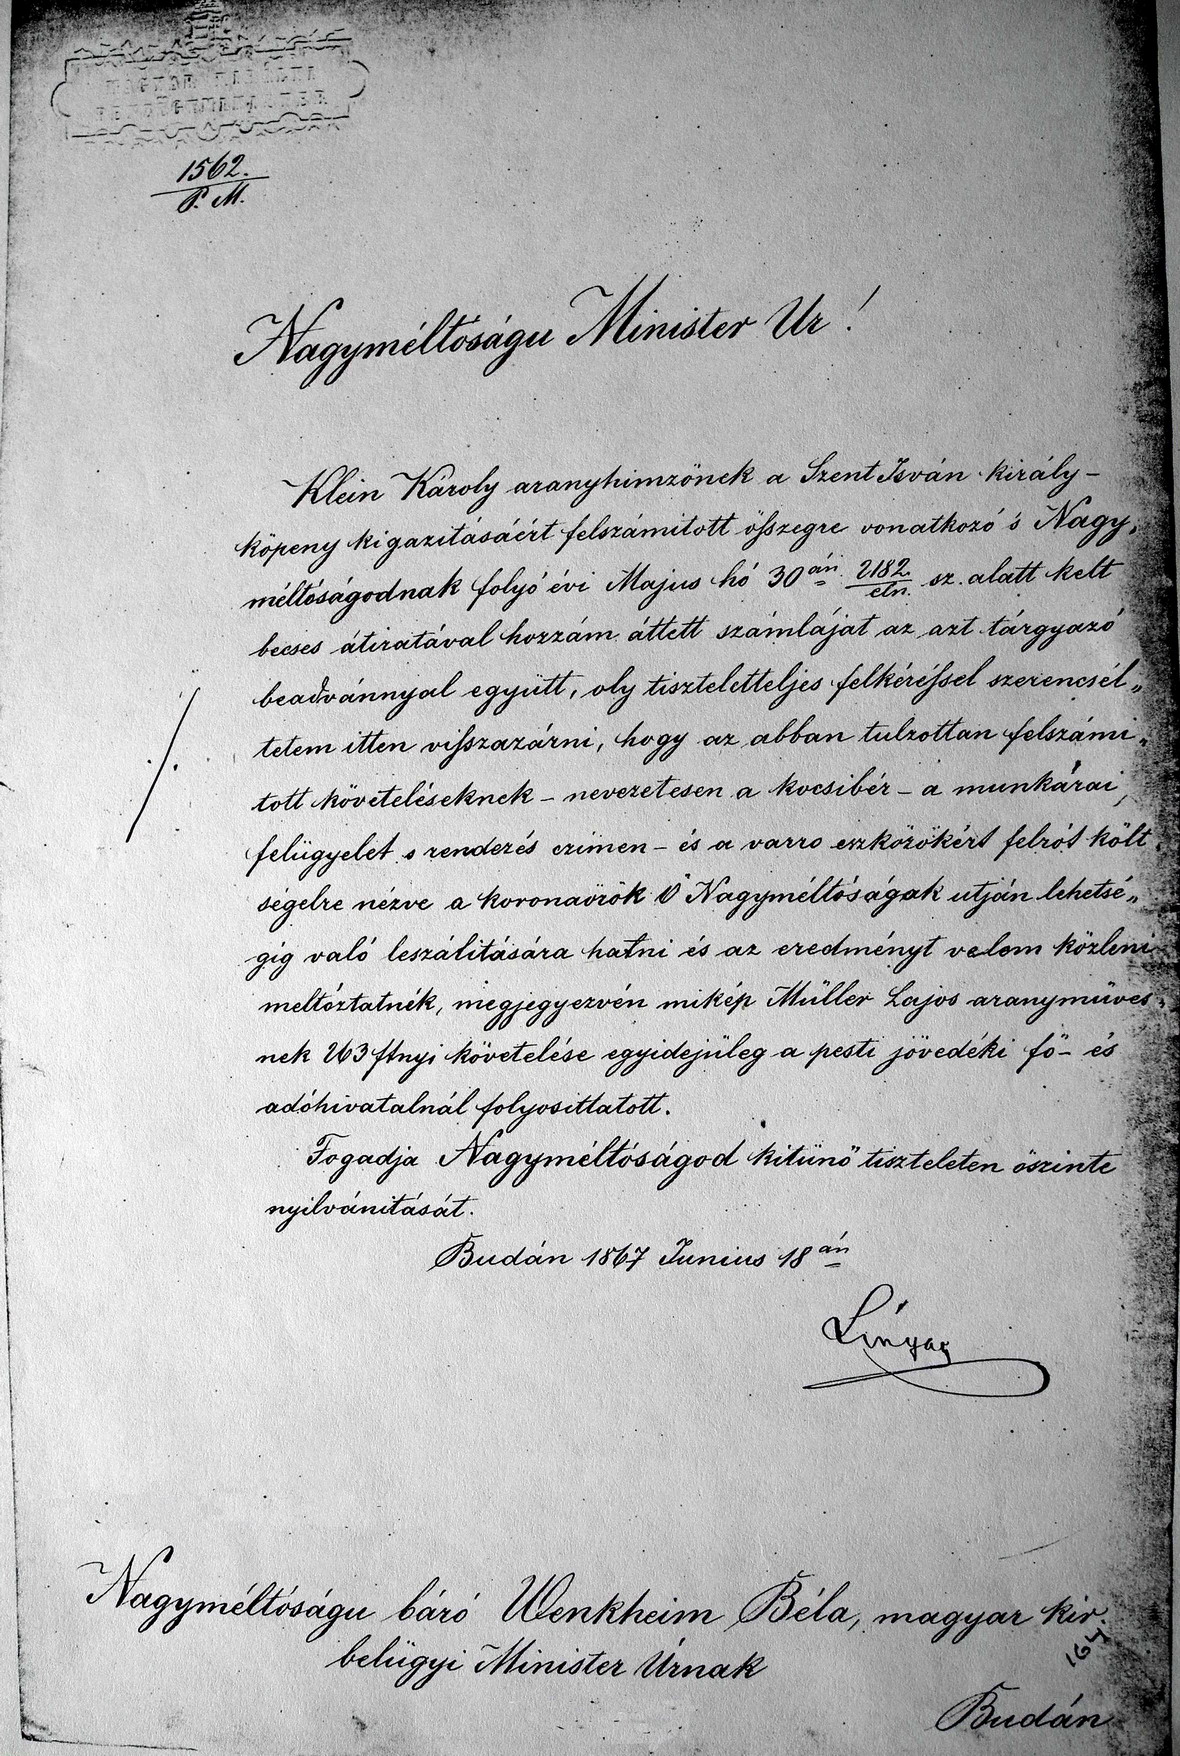 MAGYAR KIRÁLYI
PÉNZÜGYMINISTER
1562.
P. M.
Nagyméltóságu Minister Ur!
Klein Károly aranyhimzönek a Szent István király-
köpeny kigazitásáért felszámitott összegre vonatkozó s Nagy„
méltóságodnak folyó évi Majus hó 30án 2182./eln. sz. alatt kelt
becses átiratával hozzám áttett számláját az azt tárgyazó
beadvánnyal együtt, oly tiszteletteljes felkéréssel szerencsél„
tetem itten visszazárni, hogy az abban tulzottan felszámi„
tott követeléseknek – nevezetesen a kocsibér – a munkárai
felügyelet s rendezés czimen – és a varro eszközökért felrót költ„
ségelre nézve a koronaörök Ö Nagyméltóságak utján lehetsé„
gig való leszálitására hatni és az eredményt velem közleni
meltóztatnék, megjegyezvén mikép Müller Lajos aranymüves„
nek 263 ftnyi követelése egyidejüleg a pesti jövedéki fö- és
adóhivatalnál folyosittatott.
Fogadja Nagyméltóságod kitünö tiszteletem öszinte
nyilvánitását.
Budán 1867 Junius 18án
Lónyay
Nagyméltóságu báró Wenkheim Béla, magyar kir.
belügyi Minister Úrnak
164
Budán